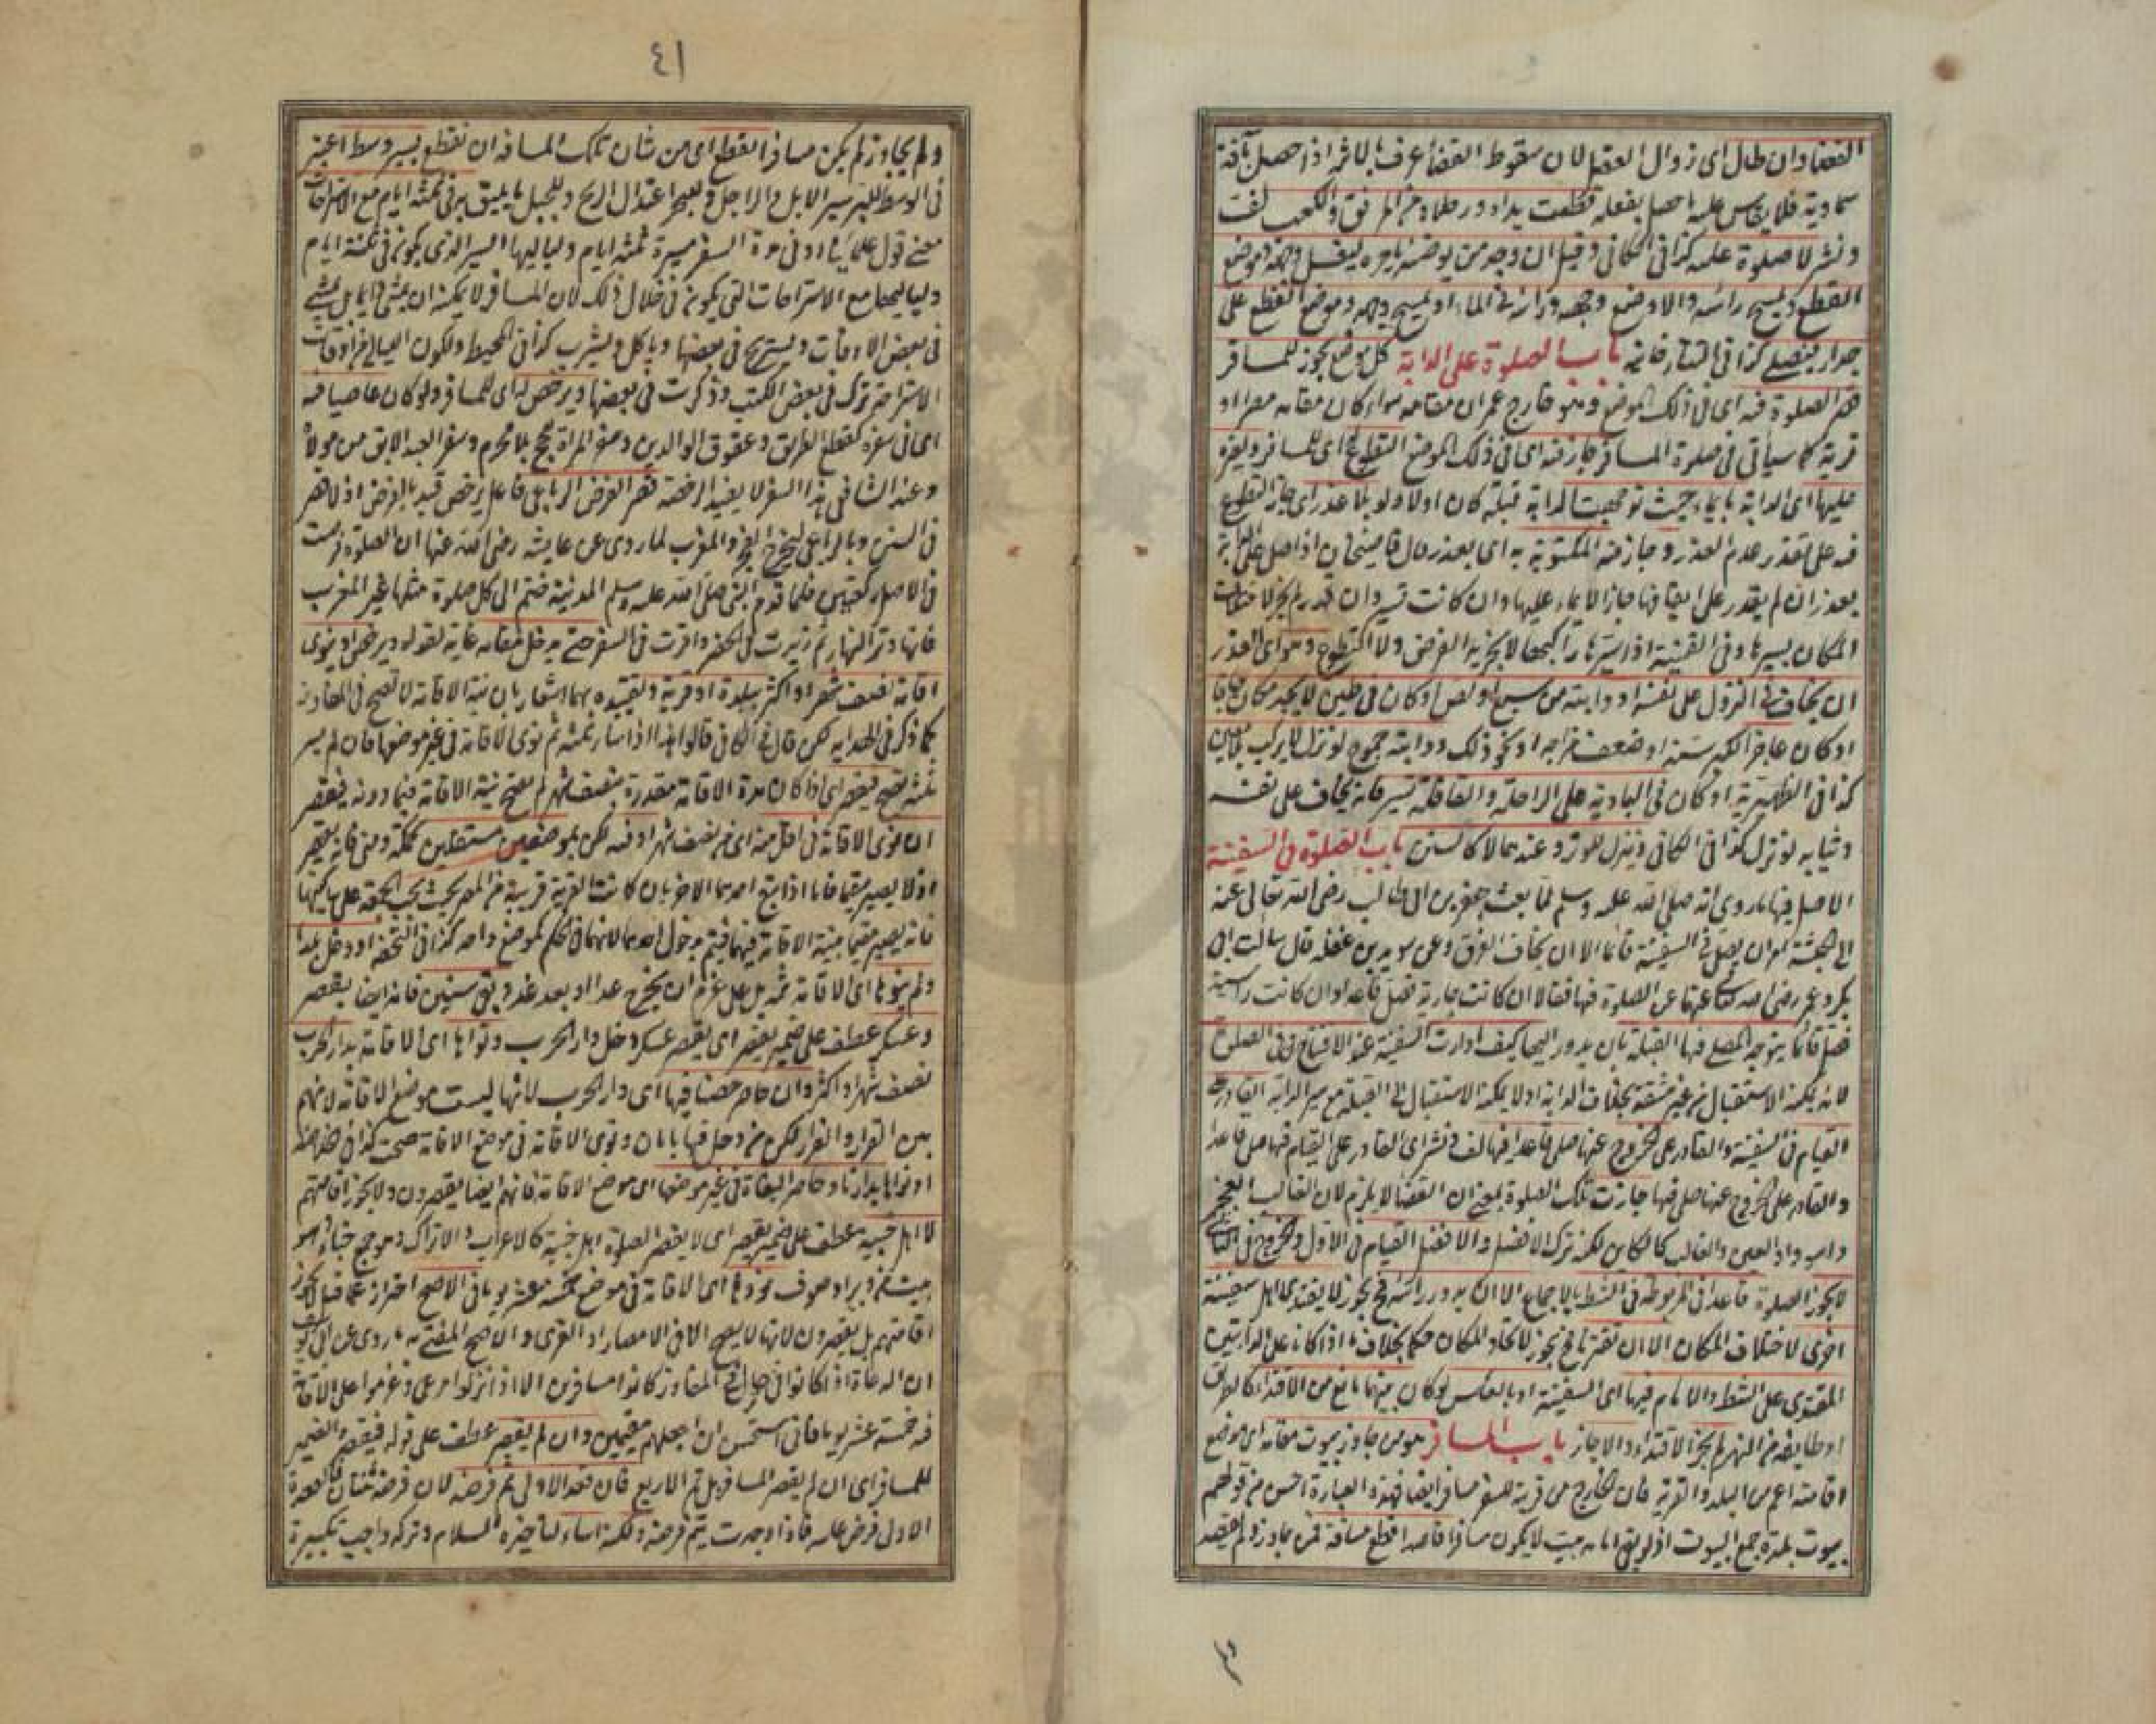 القضاء وان طال اى زوال العقل لان سقوط القضاء عرف بالاثر اذا حصل بآفة
سماوية فلا يقاس عليه ما حصل بفعله قطعت يداه ورجلاه من المرفق والكعب لف
ونشر لا صلوة عليه كذا فى الكافى وقيل ان وجد من يوضئه يامره ليغسل وجهه وموضع
القطع ويمسح راسه والا وضع وجهه وراسه فى الماء او يمسح وجهه وموضع القطع على
جدار فيصلى كذا فى التتارخانية باب الصلوة على الدابة كل موضع يجوز للمسافر
قصر الصلوة فيه اى فى ذلك الموضع وهو خارج عمران مقامه سواء كان مقامه مصرا او
قرية كما سيأتى فى صلوة المسافر جاز فيه اى فى ذلك الموضع التطوع اى للمسافر ولغيره
عليها اى الدابة بايماء حيث توجهت الدابة قبلة كان اولا ولو بلا عذر اى جاز التطوع
فيه على تقدير عدم العذر وجاز فيه المكتوبة به اى بعذر قال قاضيخان اذا صلى على الدابة
بعذر ان لم يقدر على ايقافها جاز الايماء عليها وان كانت تسير وان قدر لم يجز لاختلاف
المكان بسيرها وفى القنية اذا سيرها راكبها لا يجزيه الفرض ولا التطوع وهو اى العذر
ان يخاف فى النزول على نفسه او دابته من سبع او لص او كان فى طين لا يجد مكانا جافا
او كان عاجزا لكبر سنه او ضعف مزاجه او نحو ذلك ودابته جموح لو نزل لا يركب بلا معين
كذا فى الظهيرية او كان فى البادية على الراحلة والقافلة تسير فانه يخاف على نفسه
وثيابه لو نزل كذا فى الكافى وينزل للوتر وعندهما لا كالسنن باب الصلوة فى السفينة
الاصل فيها ما روى انه صلى الله عليه وسلم لما بعث جعفر بن ابى طالب رضى الله تعالى عنه
الى الحبشة امره ان يصلى فى السفينة قائما الا ان يخاف الغرق وعن سويد بن غفلة قال سالت ابى
بكر وعمر رضى الله تعالى عنهما عن الصلوة فيها فقالا ان كانت جارية تصلى قاعدا وان كانت راسية
فصل قائما يتوجه المصلى فيها القبلة بان يدور اليها كيف دارت السفينة عند الافتتاح وفى الصلوة
لانه يمكنه الاستقبال من غير مشقة بخلاف الدابة اذ لا يمكنه الاستقبال الى القبلة مع سير الدابة القادر على
القيام فى السفينة والقادر على الخروج عنها صلى قاعدا فيها لف ونشر اى القادر على القيام فيها صلى قاعدا
والقادر على الخروج عنها صلى فيها جازت تلك الصلوة بمعنى ان القضاء لا يلزم لان الغالب العجز
ودوار العين والغالب كالكائن لكنه ترك الافضل والافضل القيام فى الاول والخروج فى الثانى
لا يجوز الصلوة قاعدا فى المربوطة فى الشط بالاجماع الا ان يدور راسه فح يجوز لا يقتدى اهل سفينة
اخرى لاختلاف المكان الا ان تقترنا فح يجوز لاتحاد المكان حكما بخلاف ما اذا كانا على الدابتين
المقتدى على الشط والامام فيها اى السفينة او بالعكس لو كان بينهما مانع من الاقتداء كالطريق
او طائفة من النهر لم يجز الاقتداء والا جاز باب المسافر هو من جاوز بيوت مقامه اى موضع
اقامته اعم من البلد والقرية فان الخارج من قرية للسفر مسافر ايضا فهذه العبارة احسن من قولهم
بيوت بلده جمع البيوت اذ لو بقى امامه بيت لا يكون مسافرا قاصدا قطع مسافة فمن جاوز ولم يقصد
٤١
ولم يجاوز لم يكن مسافرا تقطع اى من شان تلك المسافة ان تقطع بسير وسط اعتبر
فى الوسط للبر سير الابل والراجل وللبحر اعتدال الريح وللجبل ما يليق به فى ثلثة ايام مع الاستراحات
معنى قول علمائنا ادنى مدة السفر مسيرة ثلثة ايام ولياليها السير الذى يكون فى ثلثة ايام
ولياليها مع الاستراحات التى يكون فى خلال ذلك لان المسافر لا يمكنه ان يمشى دائما بل يمشى
فى بعض الاوقات ويستريح فى بعضها وياكل ويشرب كذا فى المحيط ولكون الليالى من اوقات
الاستراحة ترك فى بعض الكتب وذكرت فى بعضها ويرخص له اى للمسافر ولو كان عاصيا فيه
اى فى سفره كقطع الطريق وعقوق الوالدين وسفر المراة للحج بلا محرم وسفر العبد الابق من مولاه
وعند الشافعى هذا السفر لا يفيد الرخصة قصر الفرض الرباعى فاعل يرخص قيد بالفرض اذ لا قصر
فى السنن وبالرباعى ليخرج الفجر والمغرب لما روى عن عايشة رضى الله عنها ان الصلوة فرضت
فى الاصل ركعتين فلما قدم النبى صلى الله عليه وسلم المدينة ضم الى كل صلوة مثلها غير المغرب
فانها وتر النهار ثم زيدت فى الحضر واقرت فى السفر حتى يدخل مقامه غاية لقوله ويرخص او ينوى
اقامة نصف شهر او اكثر ببلدة او قرية وتقييده بهما اشعار بان نية الاقامة لا تصح فى المفاوز
كما ذكر فى الهداية لكن قال فى الكافى قالوا هذا اذا سار ثلثة ثم نوى الاقامة فى غير موضعها فان لم يسر
ثلثة تصح فيقصر اى اذا كان مدة الاقامة مقدرة بنصف شهر لم تصح نية الاقامة فيما دونه فيقصر
ان نوى الاقامة فى اقل منه اى من نصف شهر او فيه لكن بموضعين مستقلين كمكة ومنى فانه يقصر
اذ لا يصير مقيما فاما اذا تبع احدهما الاخر بان كانت القرية قريبة من المصر بحيث تجب الجمعة على ساكنها
فانه يصير مقيما بنية الاقامة فيهما فيتم بدخول احدهما لانهما فى الحكم كموضع واحد كذا فى التحفة او دخل بلدا
ولم ينوها اى الاقامة ثمه بل على عزم ان يخرج غدا او بعد غد وبقى سنين فانه ايضا يقصر
وعسكر عطف على ضمير يقصر اى يقصر عسكر دخل دار الحرب ونواها اى الاقامة بدار الحرب
نصف شهر او اكثر وان حاصر حصنا فيها اى دار الحرب لانها ليست موضع الاقامة لانهم
بين القرار والفرار لكن من دخل فيها بامان ونوى الاقامة فى موضع الاقامة صحت كذا فى
او نواها بدارنا وحاصر البغاة فى غير موضعها اى موضع الاقامة فانهم ايضا يقصرون ولا يجوز اقامتهم
لا اهل اخبية عطف على ضمير يقصر اى لا يقصر الصلوة اهل اخبية كالاعراب والاتراك وهو جمع خباء وهو
بيت من وبر او صوف نووها اى الاقامة فى موضع خمسة عشر يوما فى الاصح احتراز عما قيل لا يجوز
اقامتهم بل يقصرون لانها لا يصح الا فى الامصار او القرى والاصح المفتى به ما روى عن ابى يوسف
ان الرعاة اذا كانوا فى المفاوز كانوا مسافرين الا اذا نزلوا مرعى وعزموا على الاقامة
فيه خمسة عشر يوما فانى استحسن ان اجعلهم مقيمين وان لم يقصر عطف على قوله فيقصر والضمير
للمسافر اى ان لم يقصر المسافر بل اتم الاربع فان قعد الاولى تم فرضه لان فرضه ثنتان فالقعدة
الاولى فرض عليه فاذا وجدت يتم فرضه ولكنه اساء لتاخيره السلام وتركه واجب تكبيرة